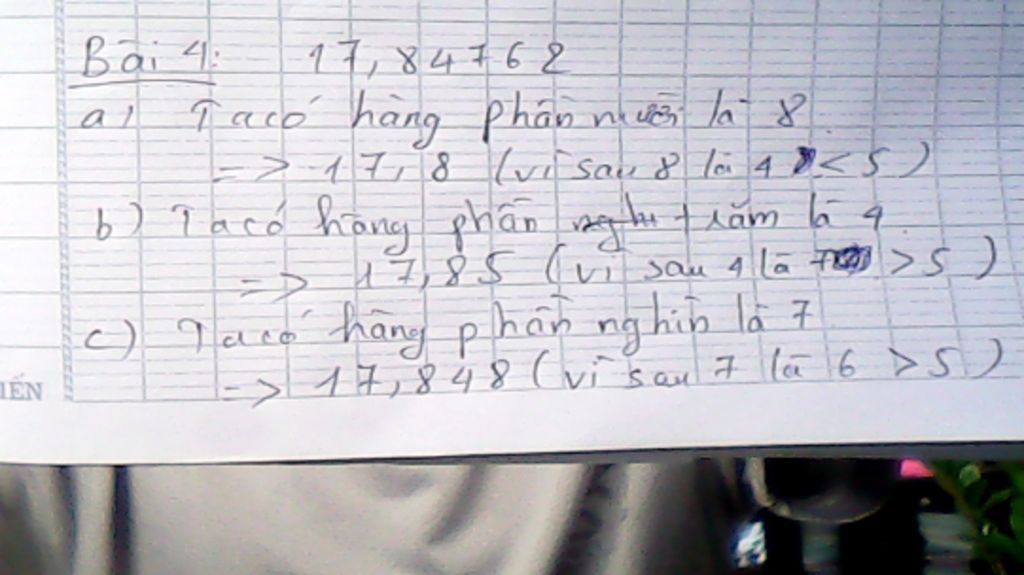 Bài 4: 17,84762
a) Ta có hàng phần mười là 8
=> 17,8 (vì sau 8 là 4 < 5)
b) Ta có hàng phần trăm là 4
=> 17,85 (vì sau 4 là 7 > 5)
c) Ta có hàng phần nghìn là 7
=> 17,848 (vì sau 7 là 6 > 5)
IẾN